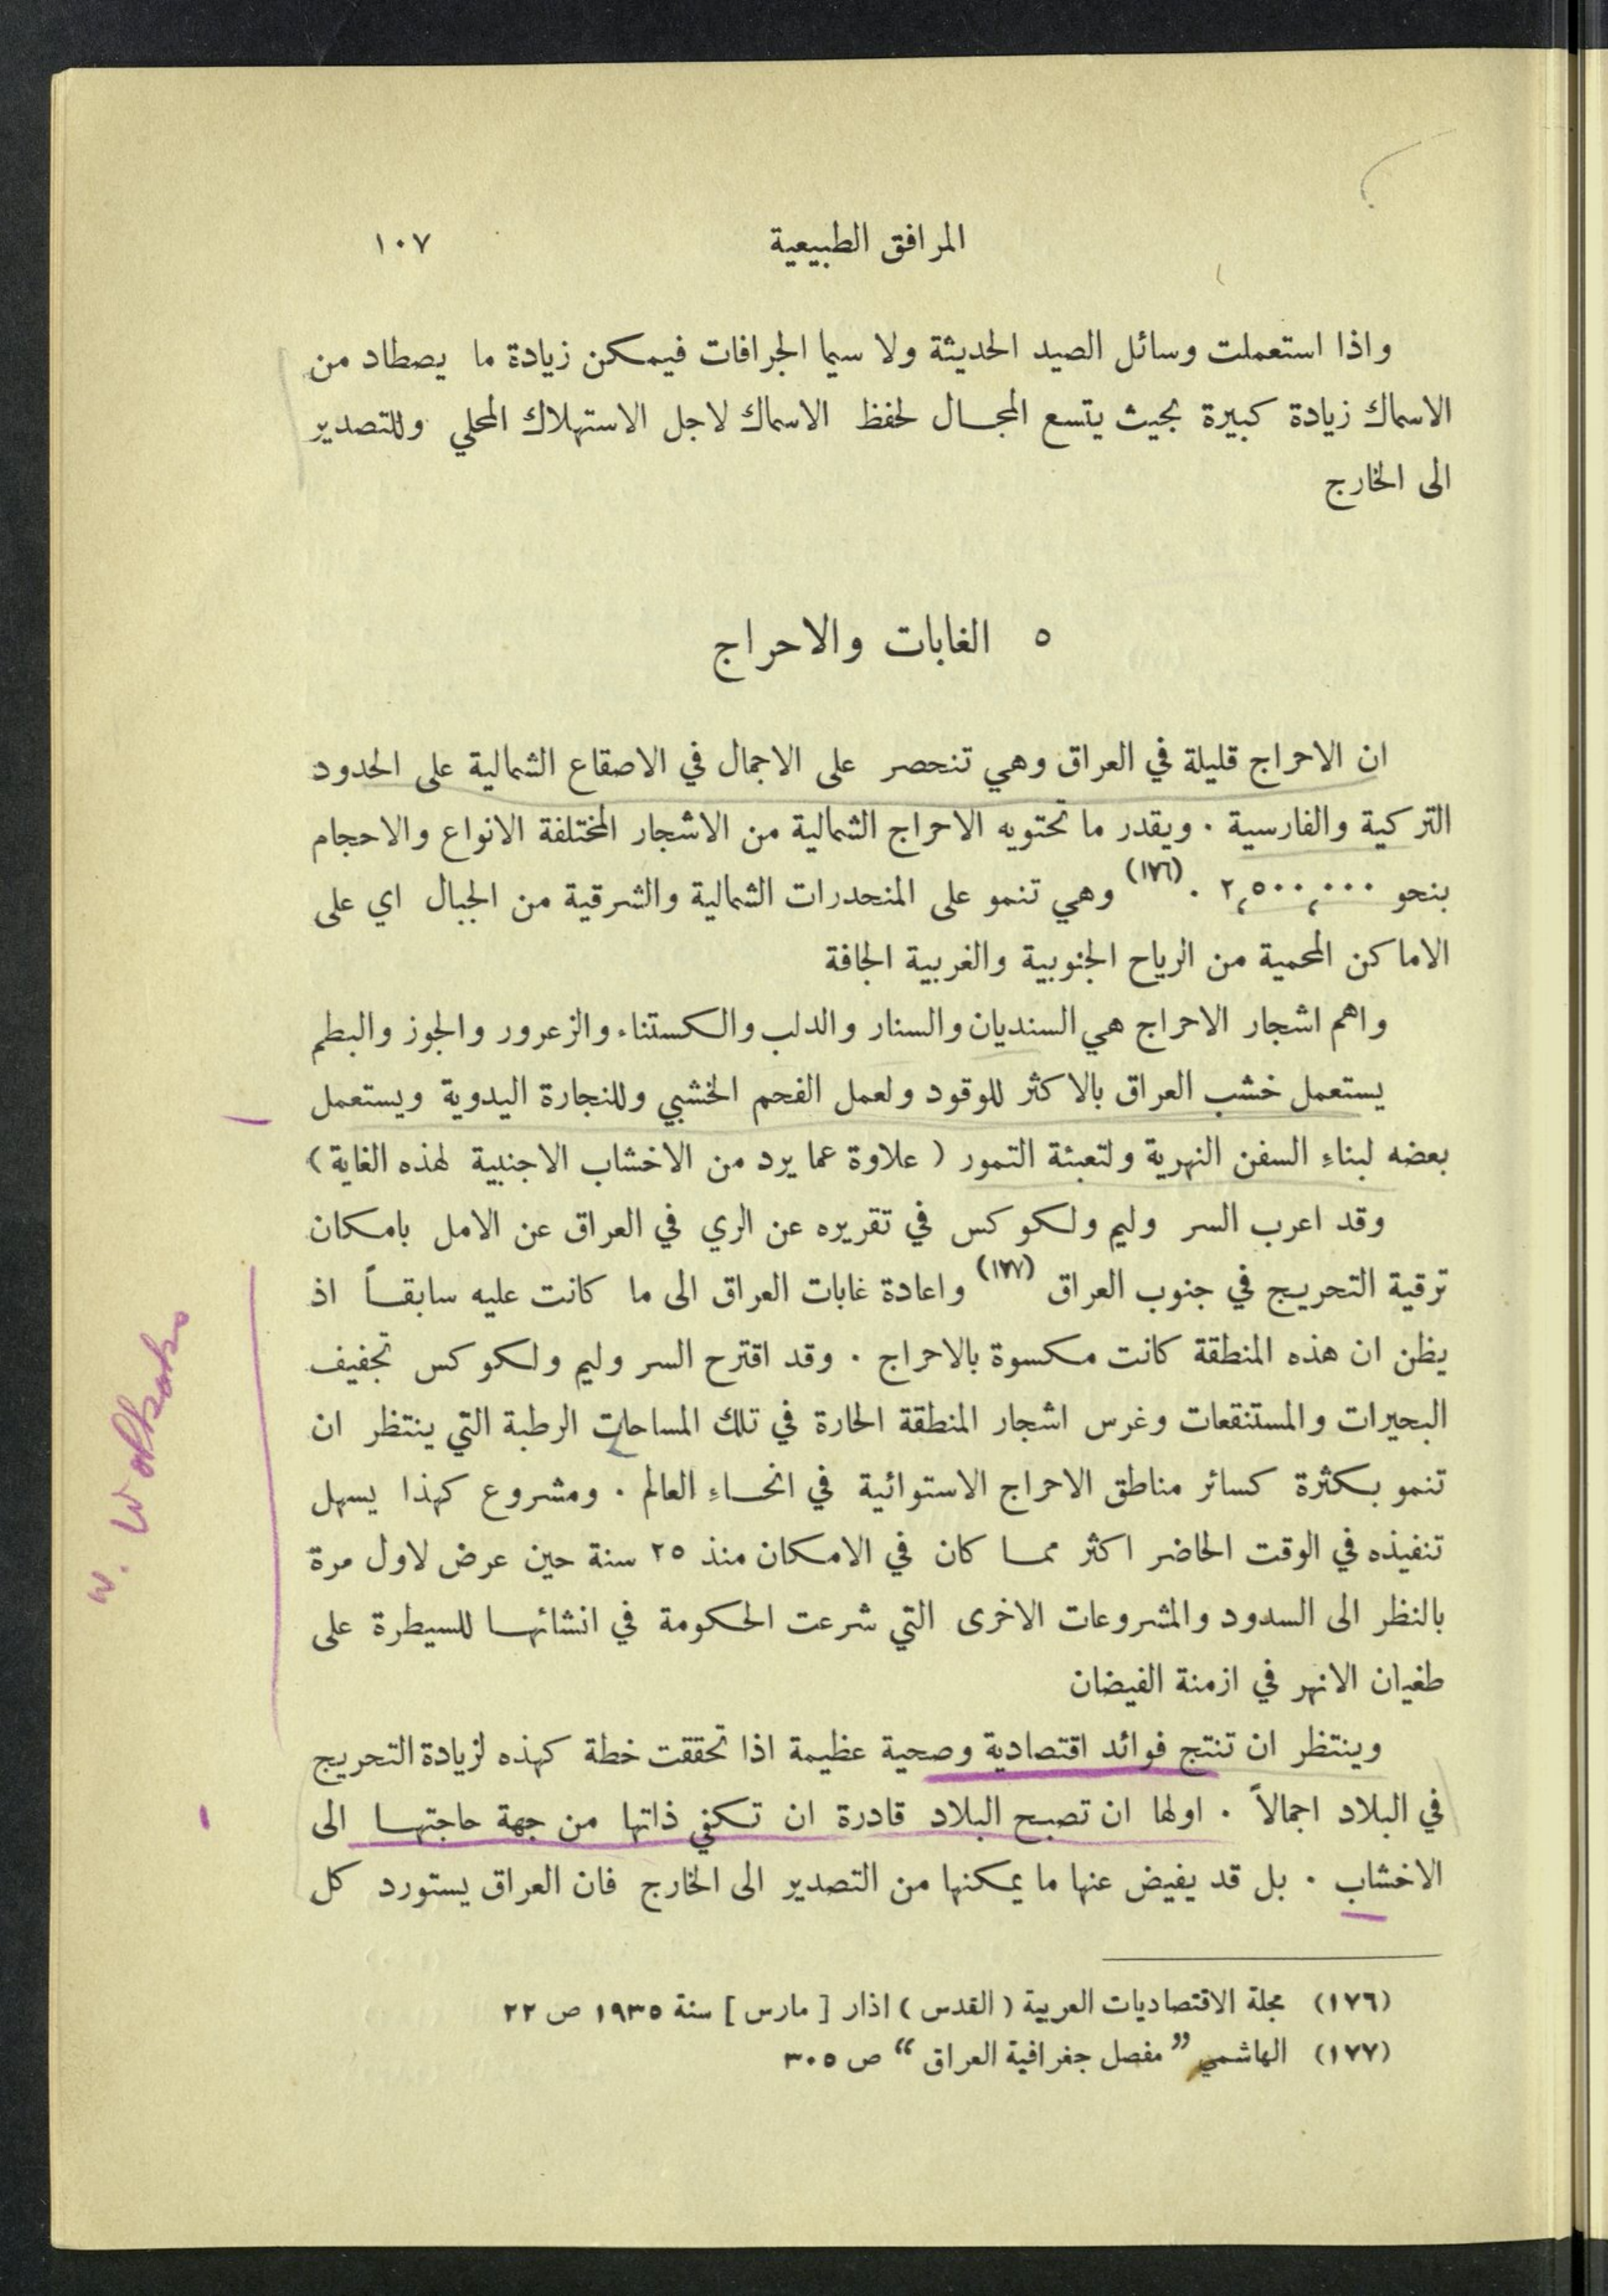 المرافق الطبيعية ١٠٧
واذا استعملت وسائل الصيد الحديثة ولا سيما الجرافات فيمكن زيادة ما يصطاد من
الاسماك زيادة كبيرة بحيث يتسع المجال لحفظ الاسماك لاجل الاستهلاك المحلي وللتصدير
الى الخارج
٥ الغابات والاحراج
ان الاحراج قليلة في العراق وهي تنحصر على الاجمال في الاصقاع الشمالية على الحدود
التركية والفارسية . ويقدر ما تحتويه الاحراج الشمالية من الاشجار المختلفة الانواع والاحجام
بنحو ٢،٥٠٠،٠٠٠ . (١٧٦) وهي تنمو على المنحدرات الشمالية والشرقية من الجبال اي على
الاماكن المحمية من الرياح الجنوبية والغربية الجافة
واهم اشجار الاحراج هي السنديان والسنار والدلب والكستناء والزعرور والجوز والبطم
يستعمل خشب العراق بالاكثر للوقود ولعمل الفحم الخشبي وللنجارة اليدوية ويستعمل
بعضه لبناءِ السفن النهرية ولتعبئة التمور ( علاوة عما يرد من الاخشاب الاجنبية لهذه الغاية )
وقد اعرب السر وليم ولكوكس في تقريره عن الري في العراق عن الامل بامكان
ترقية التحريج في جنوب العراق (١٧٧) واعادة غابات العراق الى ما كانت عليه سابقاً اذ
يظن ان هذه المنطقة كانت مكسوة بالاحراج . وقد اقترح السر وليم ولكوكس تجفيف
البحيرات والمستنقعات وغرس اشجار المنطقة الحارة في تلك المساحات الرطبة التي ينتظر ان
تنمو بكثرة كسائر مناطق الاحراج الاستوائية في انحاءِ العالم . ومشروع كهذا يسهل
تنفيذه في الوقت الحاضر اكثر مما كان في الامكان منذ ٢٥ سنة حين عرض لاول مرة
بالنظر الى السدود والمشروعات الاخرى التي شرعت الحكومة في انشائها للسيطرة على
طغيان الانهر في ازمنة الفيضان
وينتظر ان تنتج فوائد اقتصادية وصحية عظيمة اذا تحققت خطة كهذه لزيادة التحريج
في البلاد اجمالاً . اولها ان تصبح البلاد قادرة ان تكفي ذاتها من جهة حاجتها الى
الاخشاب . بل قد يفيض عنها ما يمكنها من التصدير الى الخارج فان العراق يستورد كل
(١٧٦) مجلة الاقتصاديات العربية ( القدس ) اذار [ مارس ] سنة ١٩٣٥ ص ٢٢
(١٧٧) الهاشمي ”مفصل جغرافية العراق“ ص ٣٠٥
W.